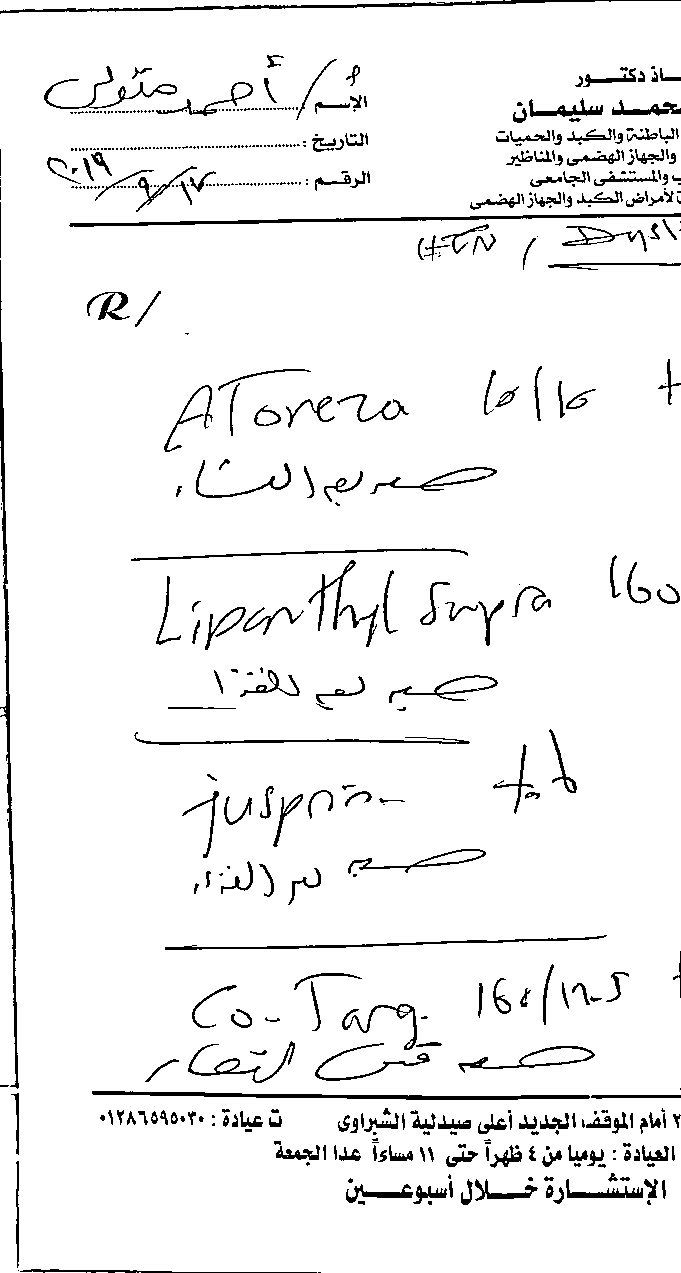 ـاذ دكتـــور
حمـد سليمـان
الباطنة والكبد والحميات
والجهاز الهضمى والمناظير
ب والمستشفى الجامعى
ة لأمراض الكبد والجهاز الهضمى
الإسم / أ / أحمد متولى
التاريخ :
الرقم : ١٧ / ٩ / ٢٠١٩
HTN / Dysl
R/
AToreza 10/10 t
حبه بعد العشاء
Lipanthyl Supra 160
حبه بعد الغذا
jusprin tab
حبه بعد الغذاء
Co-Targ 160/12.5 t
حبه قبل الفطار
٢ أمام الموقف الجديد أعلى صيدلية الشبراوى ت عيادة : ٠١٢٨٦٥٩٥٠٣٠
العيادة : يوميا من ٤ ظهراً حتى ١١ مساءاً عدا الجمعة
الإستشـــارة خـــلال أسبوعـــين